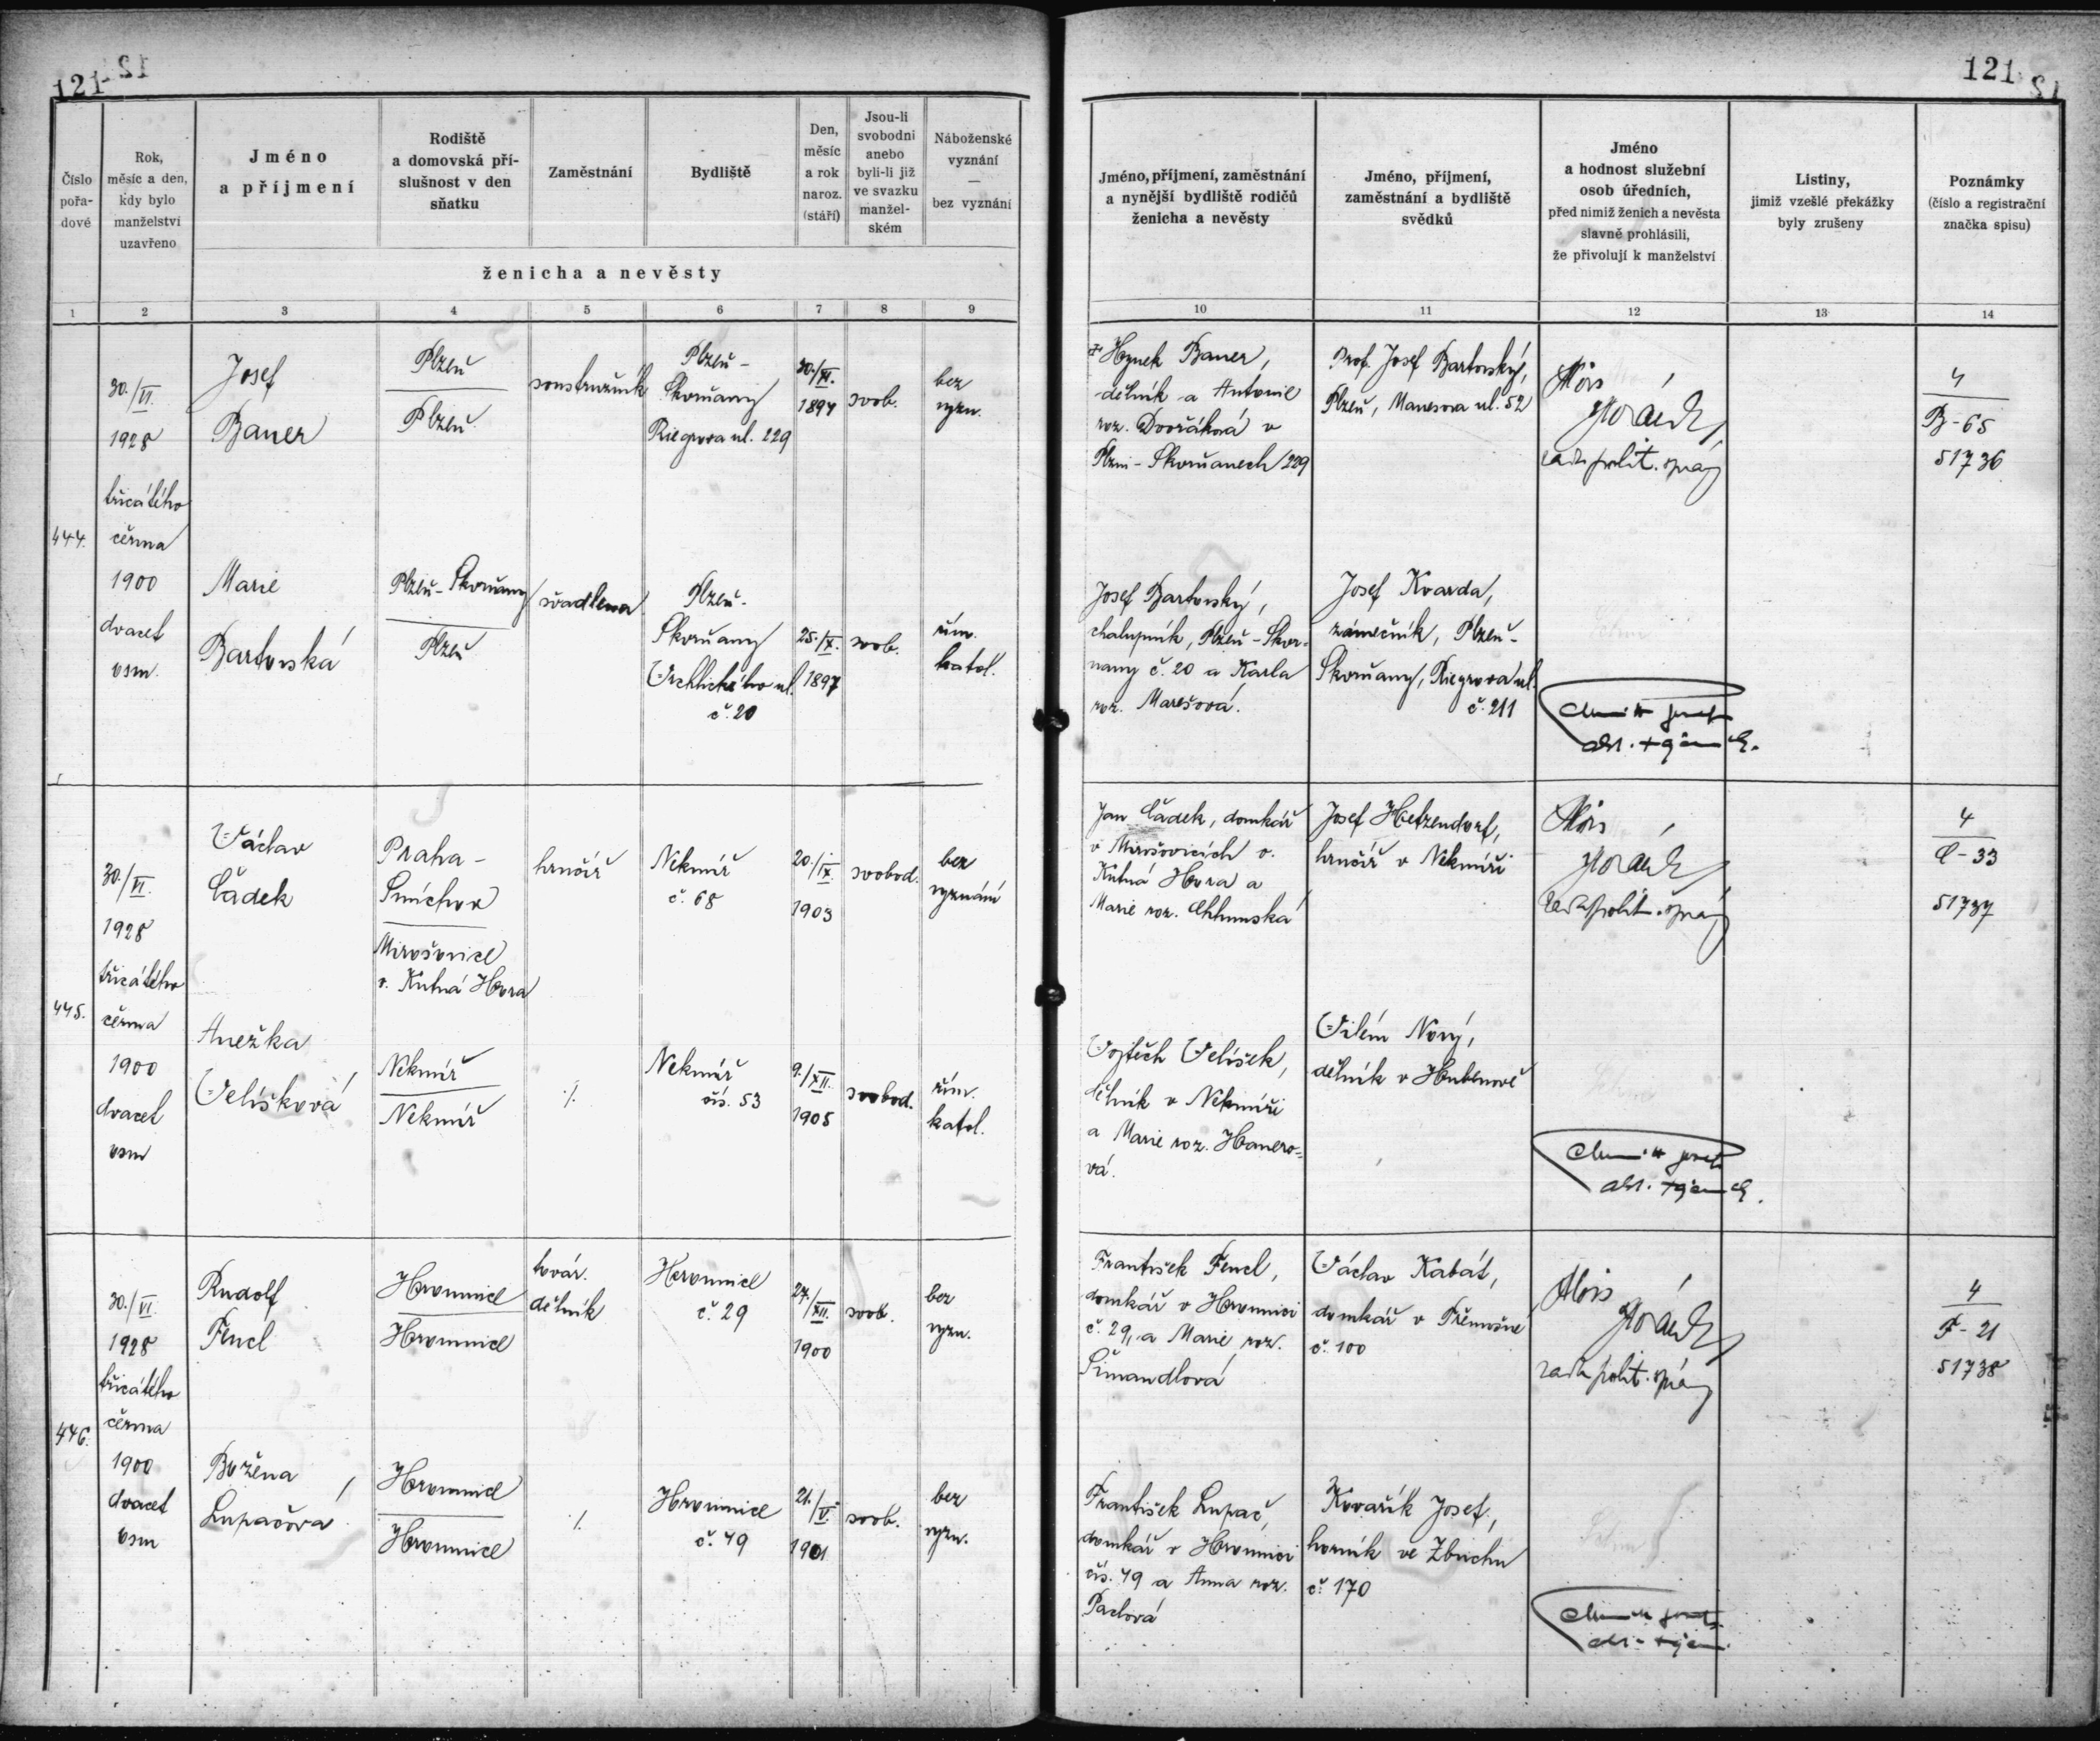 121
121
Číslo pořa-dové
Rok, měsíc a den, kdy bylo manželství uzavřeno
Jméno a příjmení
Rodiště a domovská pří-slušnost v den sňatku
Zaměstnání
Bydliště
Den, měsíc a rok naroz. (stáří)
Jsou-li svobodni anebo byli-li již ve svazku manžel-ském
Náboženské vyznání — bez vyznání
ženicha a nevěsty
Jméno, příjmení, zaměstnání a nynější bydliště rodičů ženicha a nevěsty
Jméno, příjmení, zaměstnání a bydliště svědků
Jméno a hodnost služební osob úředních, před nimiž ženich a nevěsta slavně prohlásili, že přivolují k manželství
Listiny, jimiž vzešlé překážky byly zrušeny
Poznámky (číslo a registrační značka spisu)
1 2 3 4 5 6 7 8 9 10 11 12 13 14
444.
30./VI.
1928
třicátého
června
1900
dvacet
osm.
Josef
Bauer
Plzeň
Plzeň
soustružník
Plzeň-
Skvrňany
Riegrova ul. 229
1894
svob.
bez
vyzn.
Hynek Bauer,
dělník a Antonie
roz. Dvořáková v
Plzni-Skvrňanech 229
Prof. Josef Bartovský,
Plzeň, Manesova ul. 52
Alois
rada polit. správy
4
B-65
51736
Marie
Bartovská
Plzeň-Skvrňany
Plzeň
švadlena
Plzeň-
Skvrňany
Vrchlického ul.
č. 20
25./X.
1897
svob.
řím.
katol.
Josef Bartovský,
chalupník, Plzeň-Skvr-
ňany č. 20 a Karla
roz. Marešová.
Josef Kvarda,
zámečník, Plzeň-
Skvrňany, Riegrova ul.
č. 211
445.
30./VI.
1928
třicátého
června
1900
dvacet
osm
Václav
Čádek
Praha-
Smíchov
Mirošovice
o. Kutná Hora
hrnčíř
Nekmíř
č. 68
20./IX.
1903
svobod.
bez
vyznání
Jan Čádek, domkář
v Mirošovicích o.
Kutná Hora a
Marie roz. Chlumská
Josef Hetzendorf,
hrnčíř v Nekmíři
Alois
rada polit. správy
4
C-33
51737
Anežka
Velíšková
Nekmíř
Nekmíř
·/.
Nekmíř
čís. 53
9./XII.
1905
svobod.
řím.
katol.
Vojtěch Velíšek,
dělník v Nekmíři
a Marie roz. Hanero-
vá.
Vilém Nový,
dělník v Hubenově
446.
30./VI.
1928
třicátého
června
1900
dvacet
osm
Rudolf
Fencl
Hromnice
Hromnice
továr.
dělník
Hromnice
č. 29
27./XII.
1900
svob.
bez
vyzn.
František Fencl,
domkář v Hromnici
č. 29, a Marie roz.
Šimandlová
Václav Kabát,
domkář v Třemošné
č. 100
Alois
rada polit. správy
4
F-21
51738
Božena
Lupačová
Hromnice
Hromnice
·/.
Hromnice
č. 49
21./V.
1901
svob.
bez
vyzn.
František Lupač,
domkář v Hromnici
čís. 49 a Anna roz.
Paclová
Kovařík Josef,
horník ve Zbuchu
č. 170